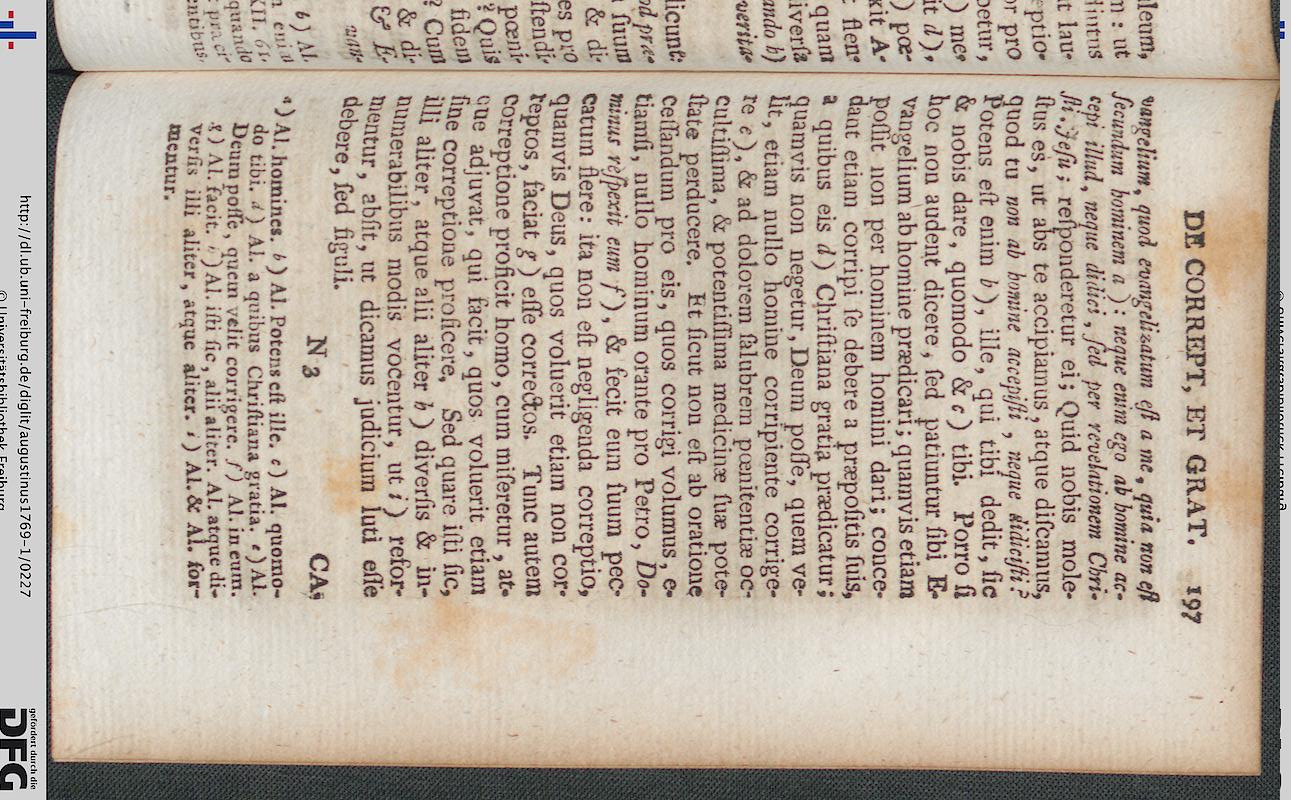 DE CORREPT, ET GRAT. 197
vangelium, quod evangelizatum eſt a me, quia non eſt
ſecundum hominem a) : neque enim ego ab homine ac-
cepi illud, neque didici, ſed per revelationem Chri-
ſti Jeſu; reſponderetur ei; Quid nobis mole-
ſtus es, ut abs te accipiamus, atque diſcamus,
quod tu non ab homine accepiſti, neque didiciſti?
Potens eſt enim b), ille, qui tibi dedit, ſic
& nobis dare, quomodo & c) tibi. Porro ſi
hoc non audent dicere, ſed patiuntur ſibi E-
vangelium ab homine prædicari; quamvis etiam
poſſit non per hominem homini dari; conce-
dant etiam corripi ſe debere a præpoſitis ſuis,
a quibus eis d) Chriſtiana gratia prædicatur;
quamvis non negetur, Deum poſſe, quem ve-
lit, etiam nullo homine corripiente corrige-
re e), & ad dolorem ſalubrem pœnitentiæ oc-
cultiſſima, & potentiſſima medicinæ ſuæ pote-
ſtate perducere. Et ſicut non eſt ab oratione
ceſſandum pro eis, quos corrigi volumus, e-
tiamſi, nullo hominum orante pro Petro, Do-
minus reſpexit eum f), & fecit eum ſuum pec-
catum flere: ita non eſt negligenda correptio,
quamvis Deus, quos voluerit etiam non cor-
reptos, faciat g) eſſe correctos. Tunc autem
correptione proficit homo, cum miſeretur, at-
que adjuvat, qui facit, quos voluerit etiam
ſine correptione proficere, Sed quare iſti ſic,
illi aliter, atque alii aliter h) diverſis & in-
numerabilibus modis vocentur, ut i) refor-
mentur, abſit, ut dicamus judicium luti eſſe
debere, ſed figuli.
N 3 CA-
a) Al. homines. b) Al. Potens eſt ille. c) Al. quomo-
do tibi. d) Al. a quibus Chriſtiana gratia. e) Al.
Deum poſſe, quem velit corrigere. f) Al. in eum.
g) Al. facit. h) Al. iſti ſic, alii aliter. Al. atque di-
verſis illi aliter, atque aliter. i) Al. & Al. for-
mentur.
http://dl.ub.uni-freiburg.de/diglit/augustinus1769-1/0227
© Universitätsbibliothek Freiburg
gefördert durch die
DFG